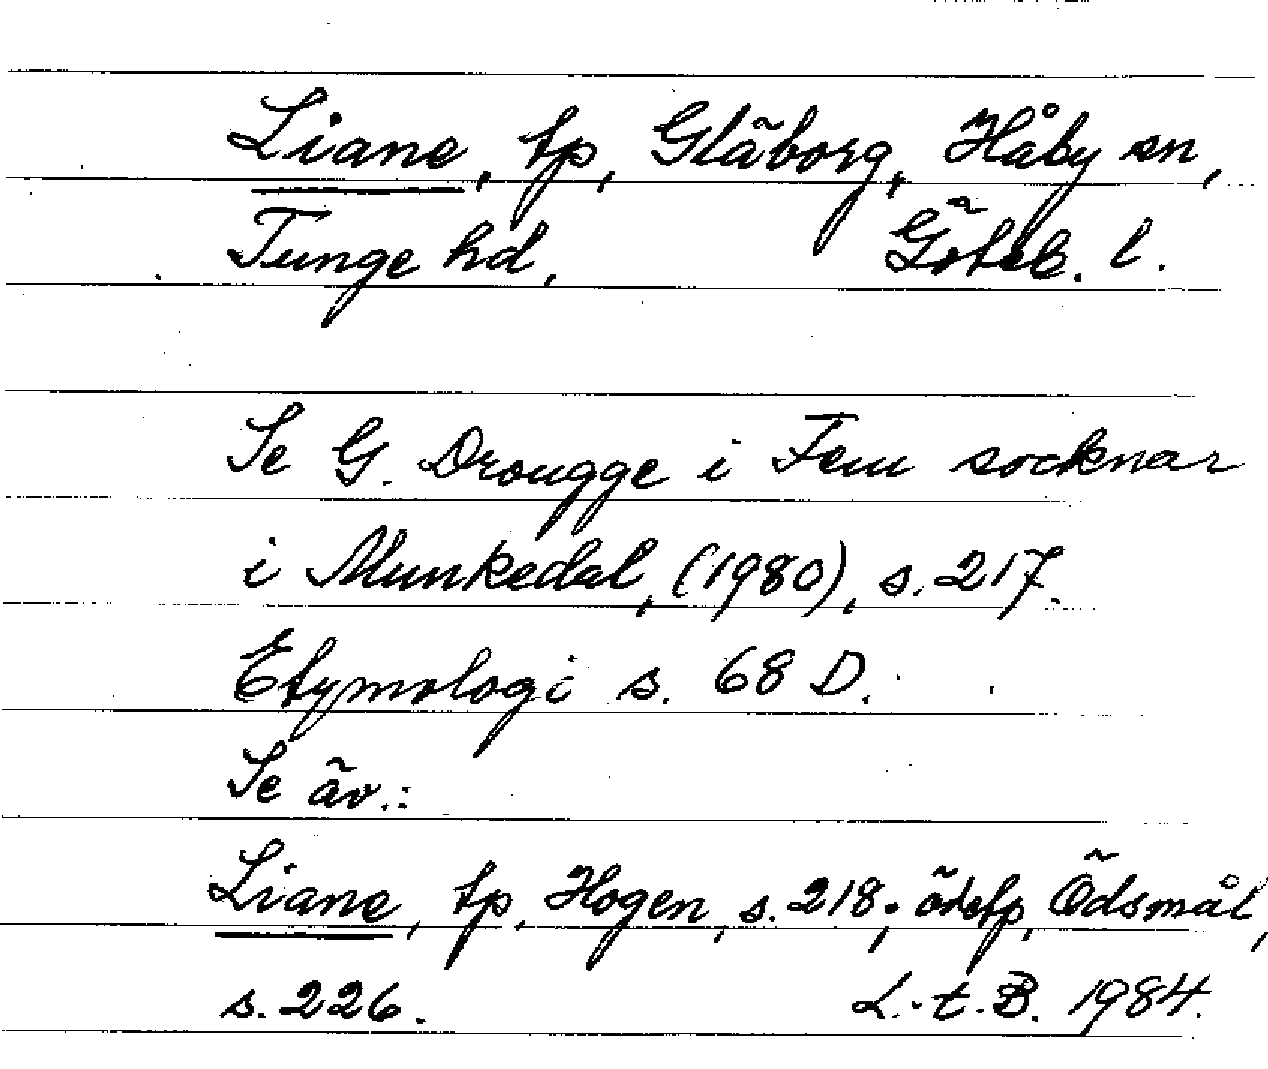 Liane, tp, Gläborg, Håby sn,
Tunge hd, Göteb. l.
Se G. Drougge i Fem socknar
i Munkedal, (1980), s. 217.
Etymologi s. 68 D.
Se äv.:
Liane, tp, Hogen, s. 218; ödetp, Ödsmål,
s. 226. L.t.B. 1984.